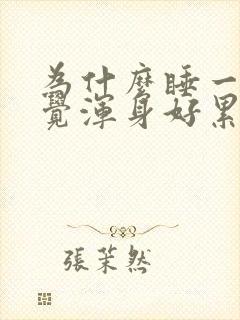 為什麼睡一
覺渾身好累
張茉然